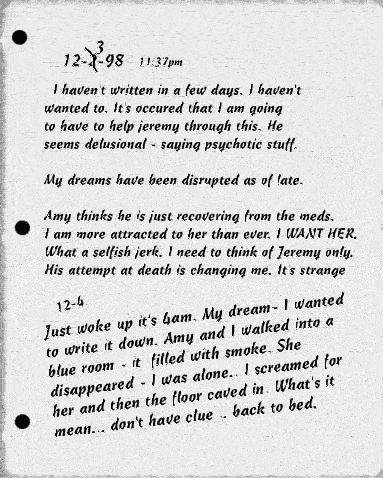 12-3-98 11:37pm
I haven't written in a few days. I haven't
wanted to. It's occured that I am going
to have to help jeremy through this. He
seems delusional - saying psychotic stuff.
My dreams have been disrupted as of late.
Amy thinks he is just recovering from the meds.
I am more attracted to her than ever. I WANT HER.
What a selfish jerk. I need to think of Jeremy only.
His attempt at death is changing me. It's strange
12-4
Just woke up it's 4am. My dream- I wanted
to write it down. Amy and I walked into a
blue room - it filled with smoke. She
disappeared - I was alone.. I screamed for
her and then the floor caved in. What's it
mean... don't have clue .. back to bed.